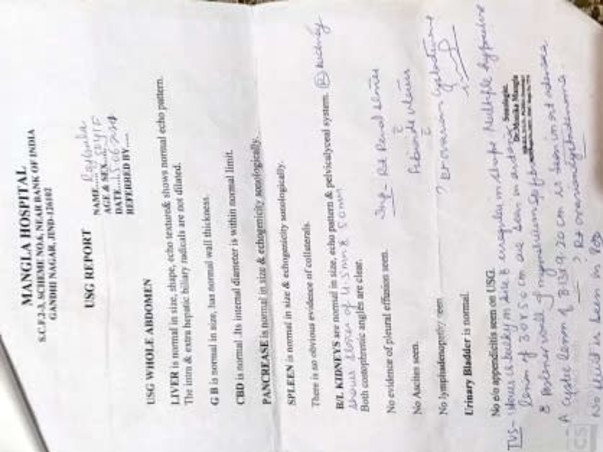 MANGLA HOSPITAL
S.C.F 2-3, SCHEME NO.6, NEAR BANK OF INDIA
GANDHI NAGAR, JIND-126102
USG REPORT
NAME...
AGE & SEX...
DATE...
REFERRED BY....
USG WHOLE ABDOMEN
LIVER is normal in size, shape, echo texture& shows normal echo pattern.
The intra & extra hepatic biliary radicals are not dilated.
G B is normal in size, has normal wall thickness.
CBD is normal .Its internal diameter is within normal limit.
PANCREASE is normal in size & echogenicity sonologically.
SPLEEN is normal in size & echogenicity sonologically.
There is no obvious evidence of collaterals.
B/L KIDNEYS are normal in size, echo pattern & pelvicalyceal system. (R) kidney
shows stone of 4.5mm & 5.0mm
Both costophrenic angles are clear.
No evidence of pleural effusion seen.
Imp - Rt Renal stones
No Ascites seen.
Fibroid uterus
No lymphadenopathy seen
? Ovarian cystadenoma
Urinary Bladder is normal.
No e/o appendicitis seen on USG.
Sonologist,
Dr. Monika Mangla
TVS- Uterus is bulky in size & irregular in shape Multiple hypoechoic
lesion of cm are seen in anterior
& Posterior wall of myometrium
A cystic lesion of cm is seen in rt adnexa
? Rt ovarian cystadenoma.
No fluid is seen in POD